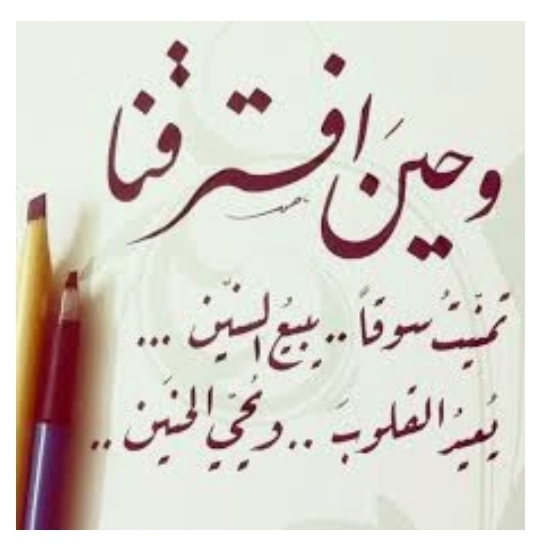 وحينَ افترقنا
تمنّيتُ سوقاً .. يبيعُ السنين ...
يُعيدُ القلوبَ .. ويُحيّي الحنين ..